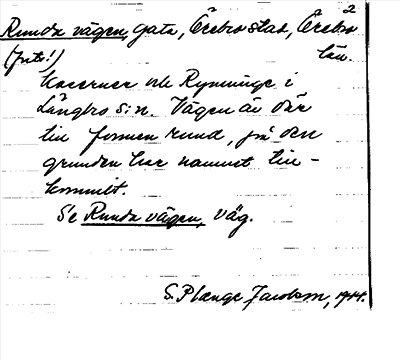 2
Runda vägen, gata, Örebro stad, Örebro
(forts!) län.
kaserner och Rynninge i
Längbro s:n. Vägen är där
till formen rund, på den
grunden har namnet till-
kommit.
Se Runda vägen, väg.
S. Plænge Jacobson, 1944.